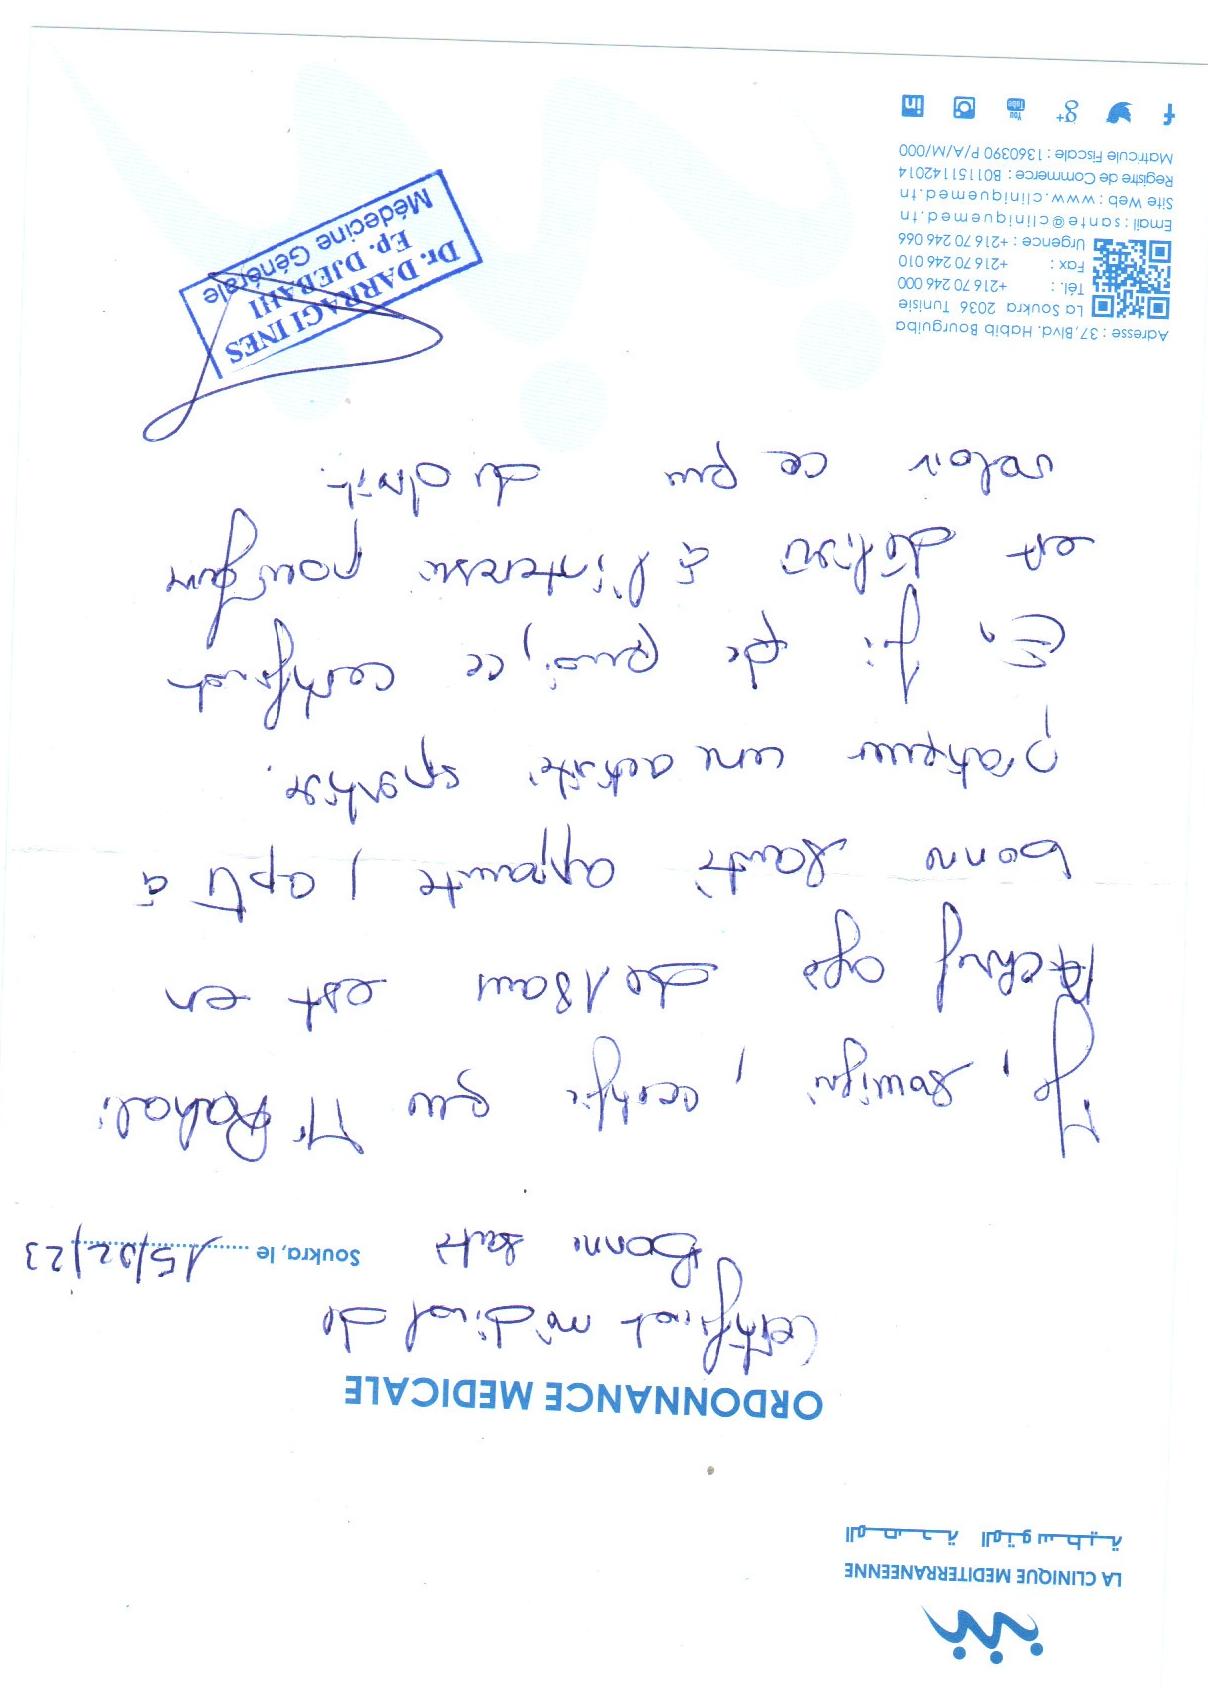 LA CLINIQUE MEDITERRANEENNE
المصحة المتوسطية
ORDONNANCE MEDICALE
Certificat médical de
Bonne santé
Soukra, le 15/02/23
Je, soussigné, certifie que Mr Rahali
âgé de 18 ans est en
bonne santé apparente, apte à
pratiquer une activité sportive.
En foi de quoi, ce certificat
est délivré à l'intéressé pour faire
valoir ce que du droit.
Dr. DARRAGI INES
Ep. DJEBAHI
Médecine Générale
Adresse : 37,Blvd. Habib Bourguiba
La Soukra 2036 Tunisie
Tél. : +216 70 246 000
Fax : +216 70 246 010
Urgence : +216 70 246 066
Email : sante@cliniquemed.tn
Site Web : www.cliniquemed.tn
Registre de Commerce : B01151142014
Matricule Fiscale : 1360390 P/A/M/000
f g+ You Tube in